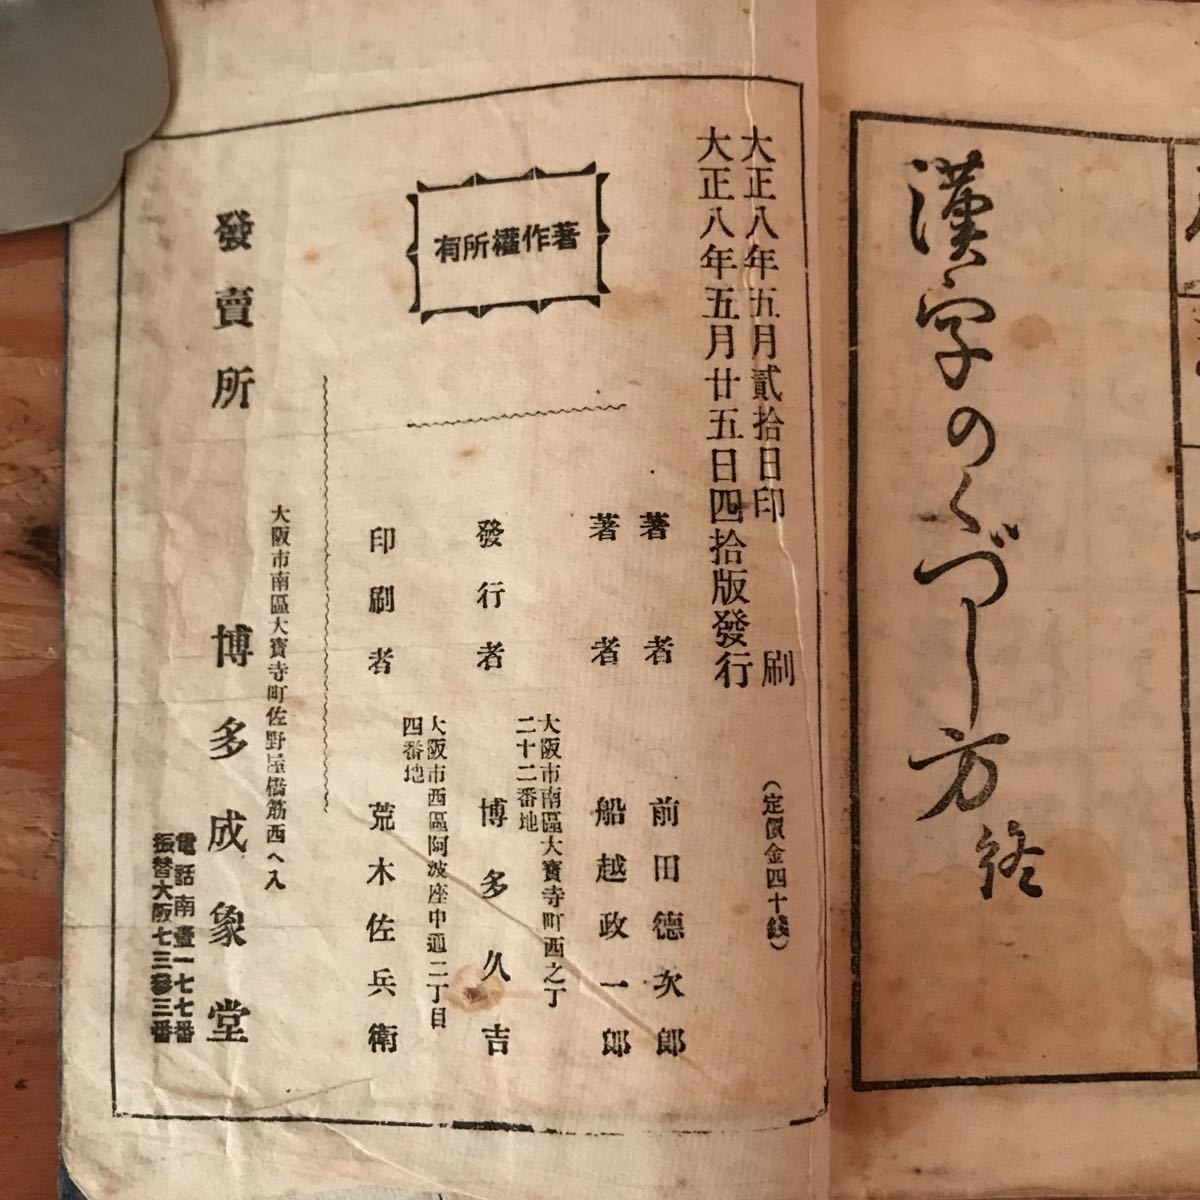 漢字のくづし方終
大正八年五月貳拾日印刷
大正八年五月廿五日四拾版發行
（定價金四十錢）
著作權所有
著者 前田德次郎
著者 船越政一郎
大阪市南區大寶寺町西之丁
二十二番地
發行者 博多久吉
大阪市西區阿波座中通二丁目
四番地
印刷者 荒木佐兵衛
大阪市南區大寶寺町佐野屋橋筋西ヘ入
發賣所 博多成象堂
電話南壹一七七番
振替大阪七三參三番